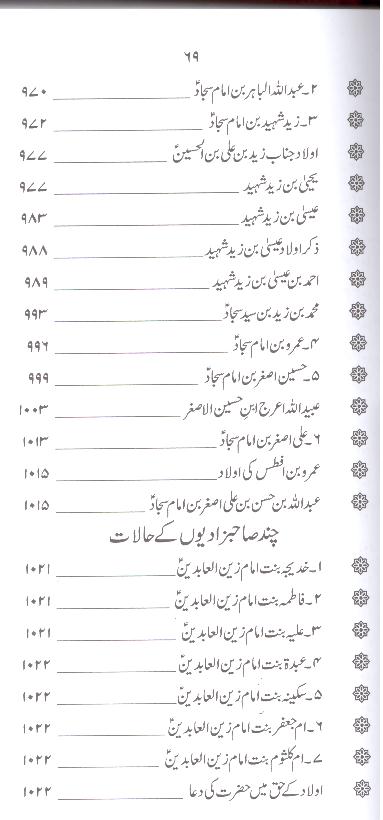 ۶۹
۲۔ عبداللہ الباہر بن امام سجادؑ ۹۷۰
۳۔ زید شہید بن امام سجادؑ ۹۷۲
اولاد جناب زید بن علی بن الحسینؑ ۹۷۷
یحییٰ بن زید شہید ۹۷۷
عیسیٰ بن زید شہید ۹۸۳
ذکر اولاد عیسیٰ بن زید شہید ۹۸۸
احمد بن عیسیٰ بن زید شہید ۹۸۹
محمد بن زید بن سید سجادؑ ۹۹۳
۴۔ عمرو بن امام سجادؑ ۹۹۶
۵۔ حسین اصغر بن امام سجادؑ ۹۹۹
عبید اللہ اعرج ابن حسین الاصغر ۱۰۰۳
۶۔ علی اصغر بن امام سجادؑ ۱۰۱۳
عمرو بن افطس کی اولاد ۱۰۱۵
عبداللہ بن حسن بن علی اصغر بن امام سجادؑ ۱۰۱۵
چند صاحبزادیوں کے حالات
۱۔ خدیجہ بنت امام زین العابدینؑ ۱۰۲۱
۲۔ فاطمہ بنت امام زین العابدینؑ ۱۰۲۱
۳۔ علیہ بنت امام زین العابدینؑ ۱۰۲۱
۴۔ عبدۃ بنت امام زین العابدینؑ ۱۰۲۲
۵۔ سکینہ بنت امام زین العابدینؑ ۱۰۲۲
۶۔ ام جعفر بنت امام زین العابدینؑ ۱۰۲۲
۷۔ ام کلثوم بنت امام زین العابدینؑ ۱۰۲۲
اولاد کے حق میں حضرت کی دعا ۱۰۲۲